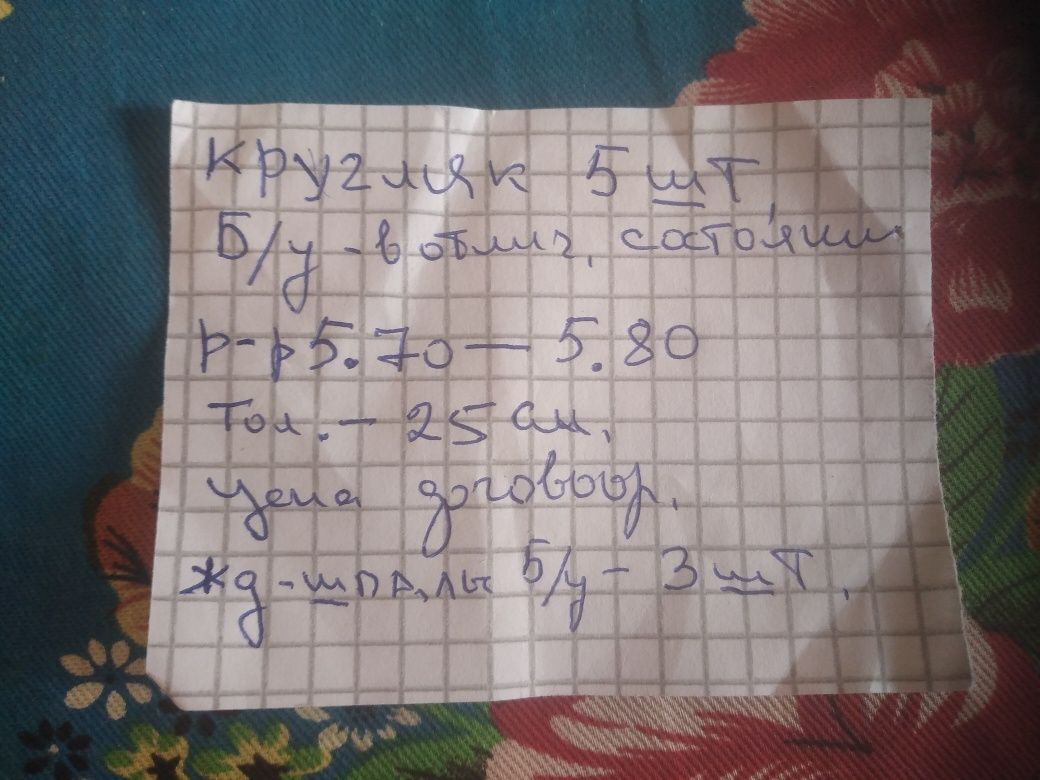 Кругляк 5 шт,
Б/у - в отлич. состоянии
р-р 5.70 — 5.80
Тол. - 25 см.
Цена договоор.
жд - шпалы Б/у - 3 шт.